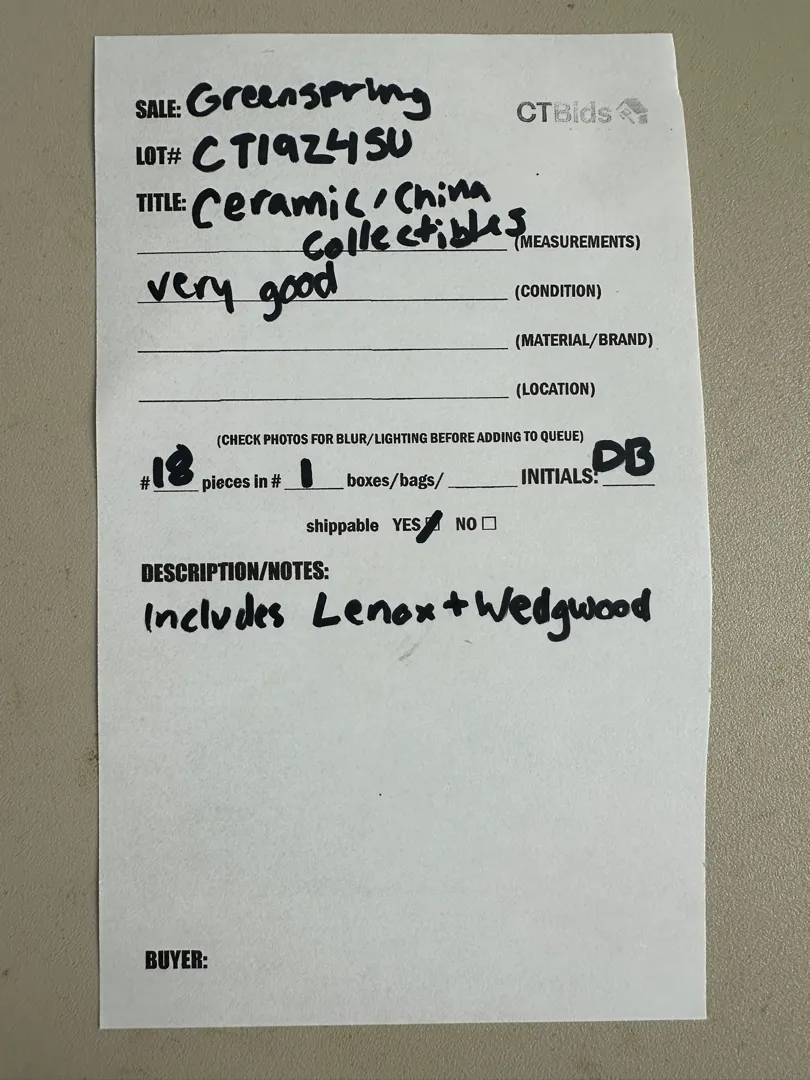 SALE: Greenspring CTBids
LOT# CT1924SU
TITLE: Ceramic/China
Collectibles (MEASUREMENTS)
very good (CONDITION)
(MATERIAL/BRAND)
(LOCATION)
(CHECK PHOTOS FOR BLUR/LIGHTING BEFORE ADDING TO QUEUE)
#18 pieces in # 1 boxes/bags/ INITIALS: DB
shippable YES NO
DESCRIPTION/NOTES:
Includes Lenox + Wedgwood
BUYER: